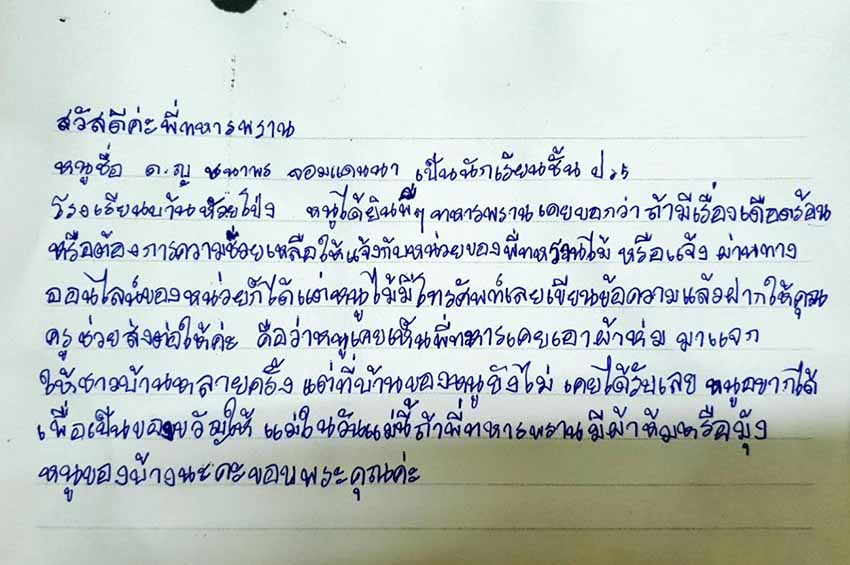 สวัสดีค่ะพี่ทหารพราน
หนูชื่อ ด.ญ ชนาพร จอมแดนนา เป็นนักเรียนชั้น ป.5
โรงเรียนบ้านห้วยโป่ง หนูได้ยินพี่ๆ ทหารพรานเคยบอกว่า ถ้ามีเรื่องเดือดร้อน
หรือต้องการความช่วยเหลือให้แจ้งกับหน่วยของพี่ทหารพรานได้ หรือแจ้ง ผ่านทาง
ออนไลน์ของหน่วยก็ได้แต่หนูไม่มีโทรศัพท์เลยเขียนข้อความแล้วฝากให้คุณ
ครูช่วยส่งต่อให้ค่ะ คือว่าหนูเคยเห็นพี่ทหารเคยเอาผ้าห่ม มาแจก
ให้ชาวบ้านหลายครั้ง แต่ที่บ้านของหนูยังไม่ เคยได้รับเลย หนูอยากได้
เพื่อเป็นของขวัญให้ แม่ในวันแม่นี้ถ้าพี่ทหารพรานมีผ้าห่มหรือมุ้ง
หนูขอบ้างนะคะขอบพระคุณค่ะ